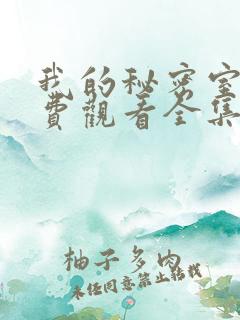 我的秘密室
費觀看全集
柚子多肉
未经同意禁止转载